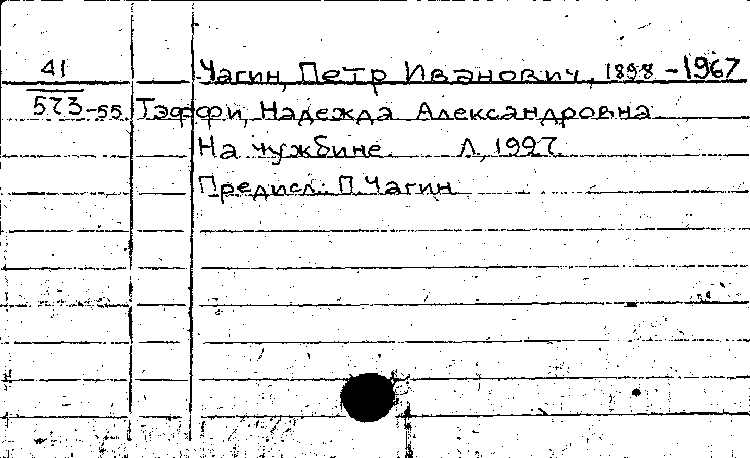 41 Чагин, Петр Иванович, 1898-1967
573-55 Тэффи, Надежда Александровна
На чужбине Л, 1927.
Предисл.: П. Чагин